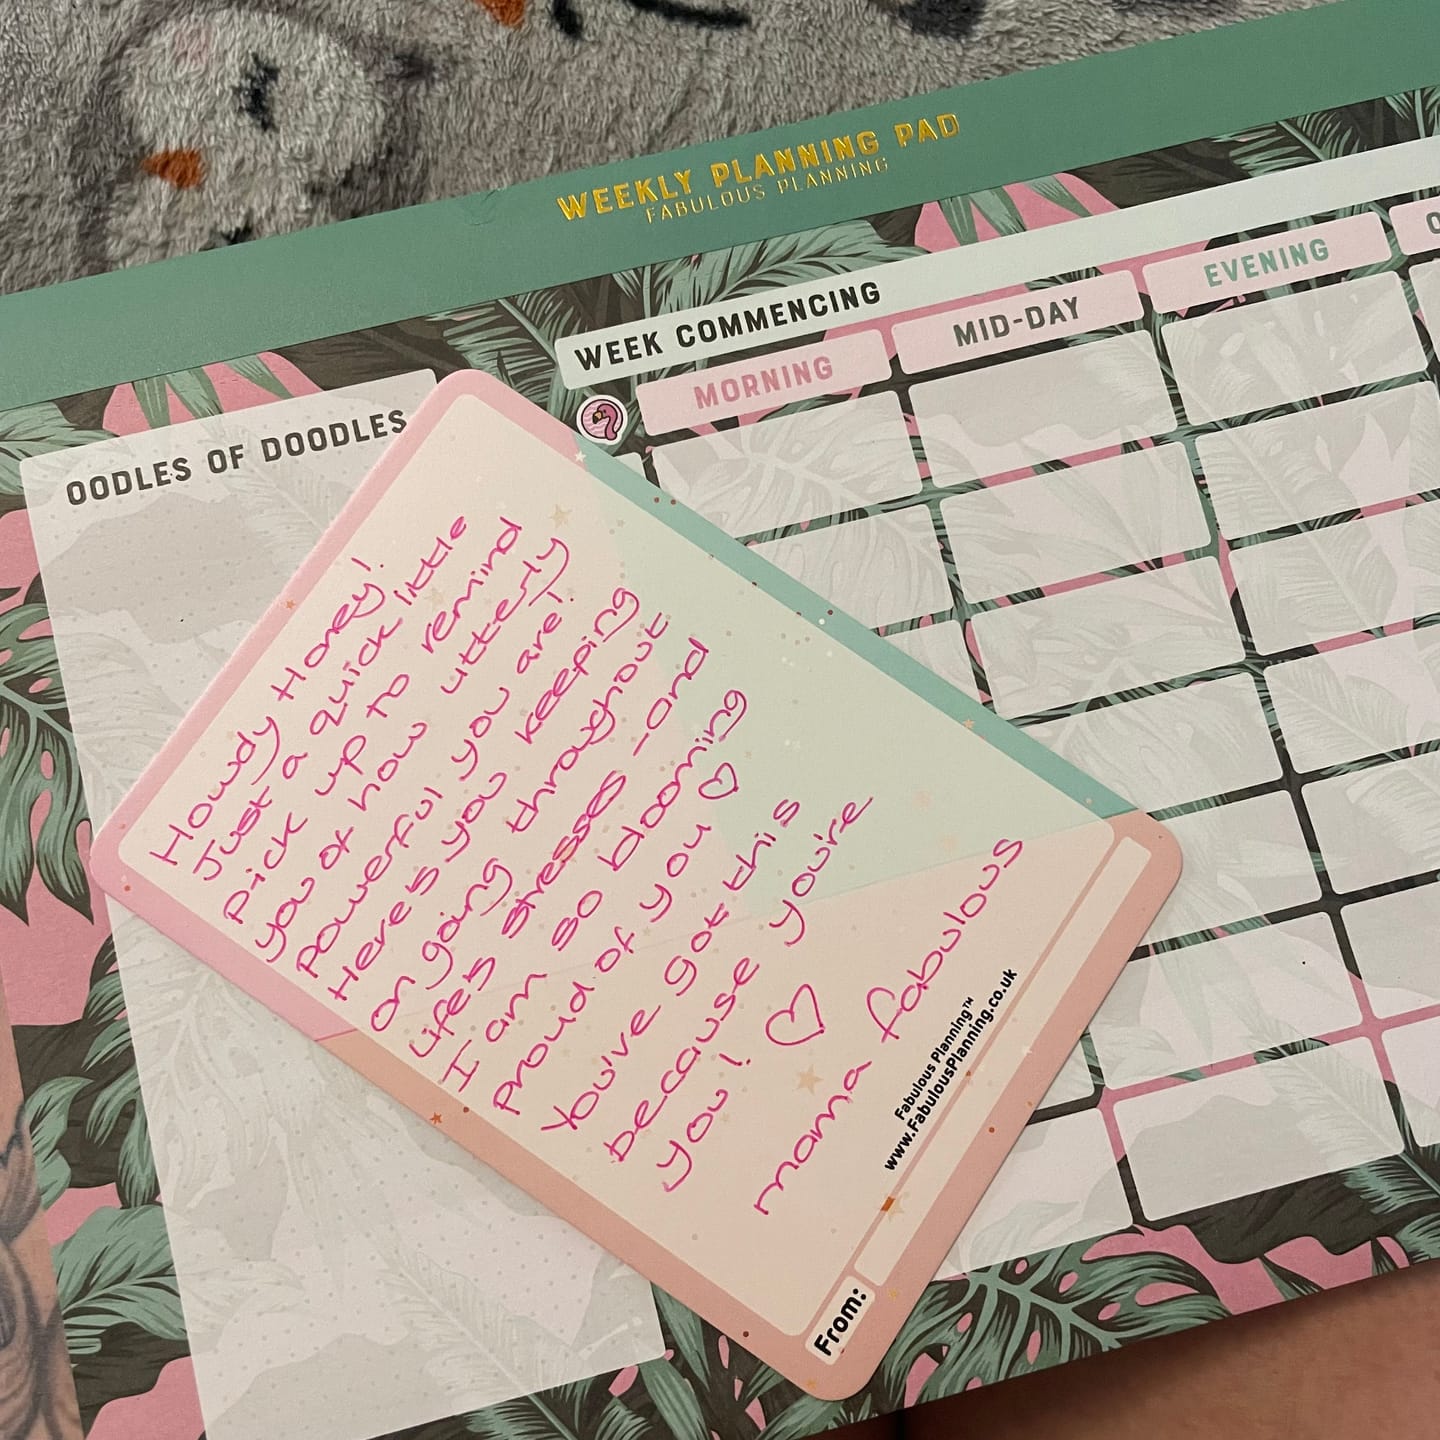 WEEKLY PLANNING PAD
FABULOUS PLANNING
WEEK COMMENCING
MORNING
MID-DAY
EVENING
OODLES OF DOODLES
Howdy Honey!
Just a quick little
pick up to remind
you of how utterly
powerful you are!
Here's you keeping
on going throughout
life's stresses - and
I am so blooming
proud of you ♡
You've got this
because you're
you! ♡
mama fabulous
Fabulous Planning™
www.FabulousPlanning.co.uk
From: